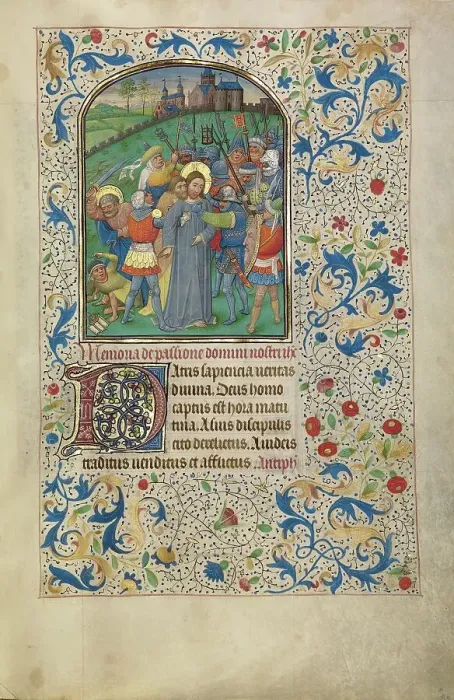 Memoria de passione domini nostri ihū
Patris sapiencia veritas
divina. Deus homo
captus est hora matu
tina. A suis discipulis
cito derelictus. A iudeis
traditus venditus et afflictus. Antiph